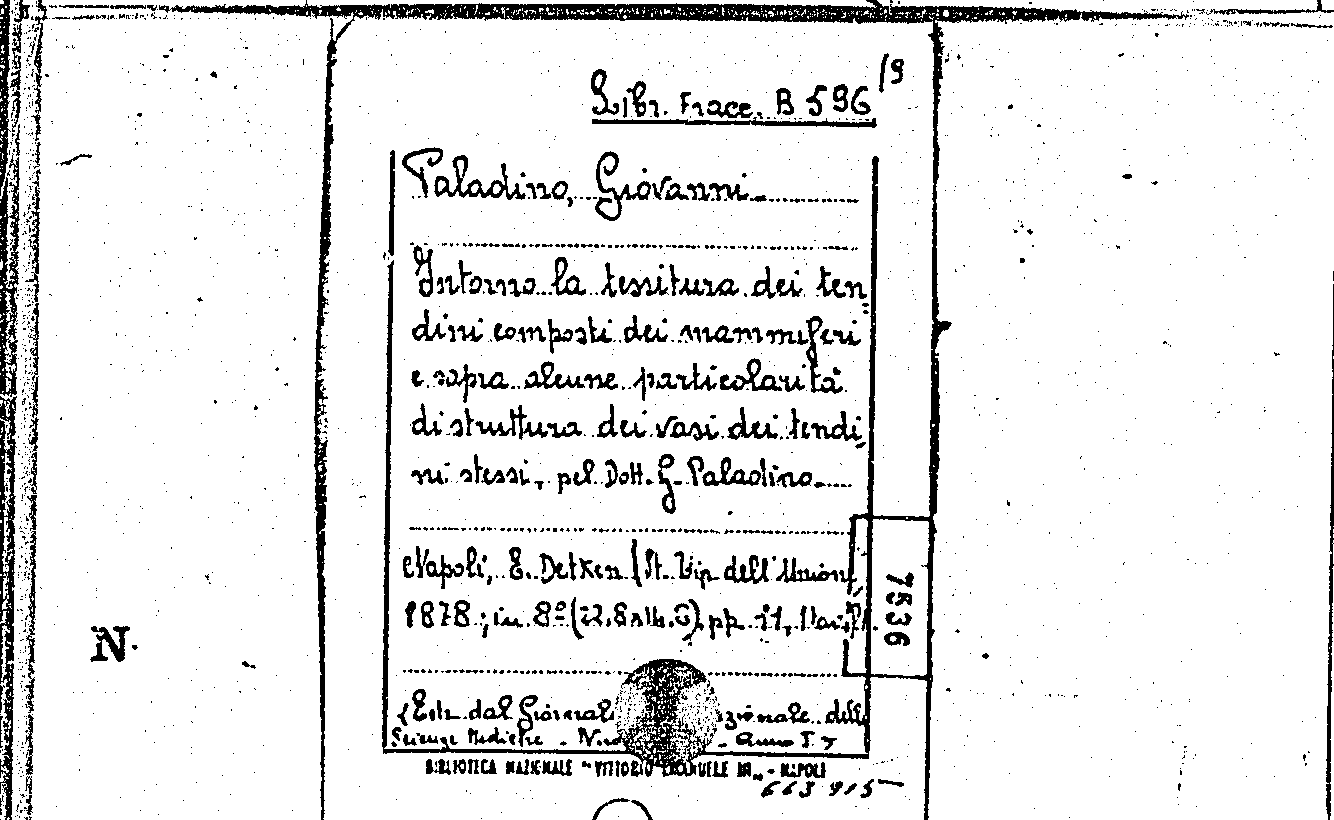 Libr. Frace. B 596/9
Paladino, Giovanni
Intorno la tessitura dei ten-
dini composti dei mammiferi
e sopra alcune particolarità
di struttura dei vasi dei tendi-
ni stessi, pel Dott. G. Paladino.
Napoli, E. Detken (St. Tip. dell'Unione
1878; in 8º (22,8x14.6) pp. 11,
(Estr. dal Giornale zionale delle
Scienze Mediche - - Anno I.
BIBLIOTECA NAZIONALE "VITTORIO EMANUELE III" - NAPOLI
663915
7536
N.